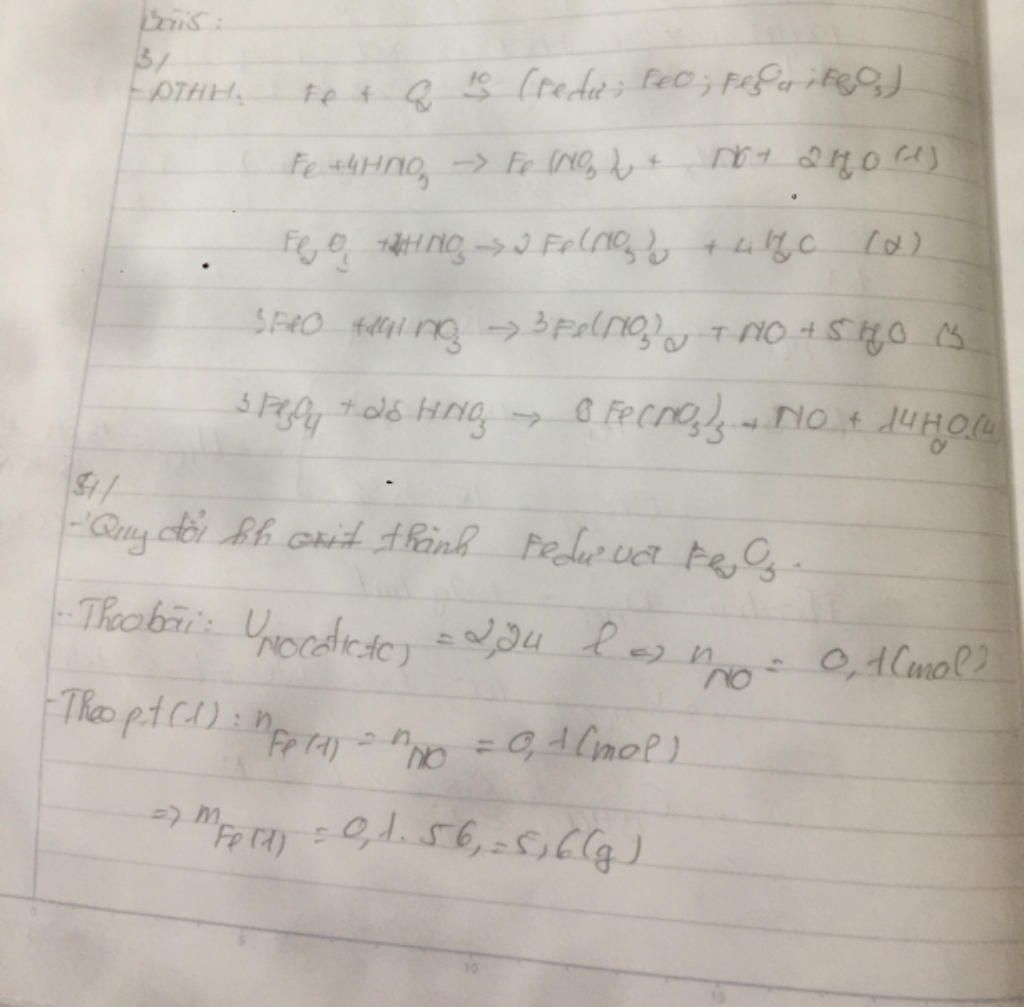 Bài 5:
3/
- PTHH: Fe + O₂ →t⁰ (Fe dư; FeO; Fe₃O₄; Fe₂O₃)
Fe + 4HNO₃ → Fe(NO₃)₃ + NO + 2H₂O (1)
Fe₂O₃ + HNO₃ → 2Fe(NO₃)₂ + 4H₂O (2)
3FeO + HNO₃ → 3Fe(NO₃)₂ + NO + 5H₂O (3
3Fe₃O₄ + 28HNO₃ → 8Fe(NO₃)₃ + NO + 14H₂O. (4
- Quy đổi hh oxit thành Fe dư và Fe₂O₃.
- Theo bài: V NO(đktc) = 2,24 l => n NO = 0,1 (mol)
- Theo p.t (1): n Fe(1) = n NO = 0,1 (mol)
=> m Fe(1) = 0,1 . 56 = 5,6 (g)